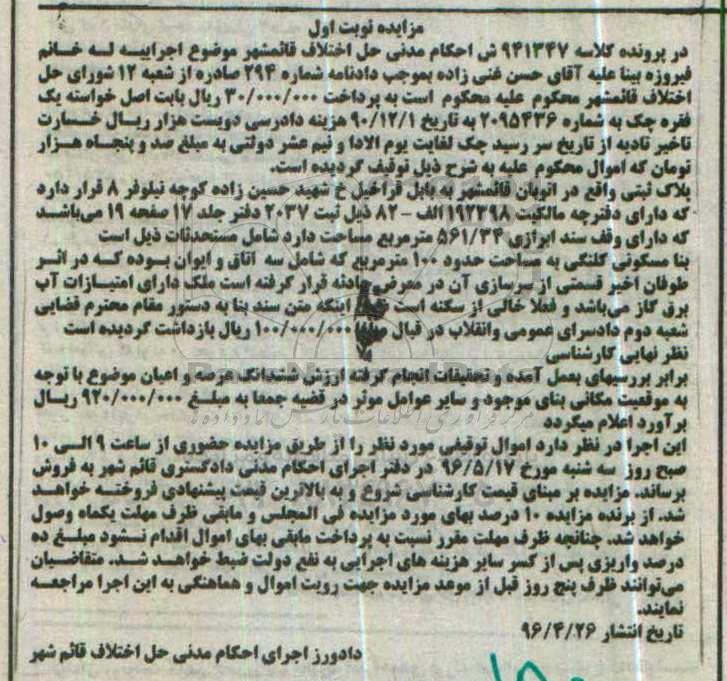 مزایده نوبت اول
در پرونده کلاسه ۹۴۱۳۴۷ ش احکام مدنی حل اختلاف قائمشهر موضوع اجراییه له خانم
فیروزه بینا علیه آقای حسن غنی زاده بموجب دادنامه شماره ۲۹۴ صادره از شعبه ۱۲ شورای حل
اختلاف قائمشهر محکوم علیه محکوم است به پرداخت ۳۰/۰۰۰/۰۰۰ ریال بابت اصل خواسته یک
فقره چک به شماره ۲۰۹۵۴۳۶ به تاریخ ۹۰/۱۲/۱ هزینه دادرسی دویست هزار ریال خسارت
تاخیر تادیه از تاریخ سر رسید چک لغایت یوم الادا و نیم عشر دولتی به مبلغ صد و پنجاه هزار
تومان که اموال محکوم علیه به شرح ذیل توقیف گردیده است.
پلاک ثبتی واقع در اتوبان قائمشهر به بابل قراخیل خ شهید حسین زاده کوچه نیلوفر ۸ قرار دارد
که دارای دفترچه مالکیت ۱۹۲۳۹۸ الف - ۸۲ ذیل ثبت ۲۰۳۷ دفتر جلد ۱۷ صفحه ۱۹ می‌باشد
که دارای وقف سند ابرازی ۵۶۱/۳۴ مترمربع مساحت دارد شامل مستحدثات ذیل است
بنا مسکونی کلنگی به مساحت حدود ۱۰۰ مترمربع که شامل سه اتاق و ایوان بوده که در اثر
طوفان اخیر قسمتی از سربازی آن در معرض حادثه قرار گرفته است ملک دارای امتیازات آب
برق گاز می‌باشد و فعلا خالی از سکنه است اینکه متن سند بنا به دستور مقام محترم قضایی
شعبه دوم دادسرای عمومی وانقلاب در قبال مبلغ ۱۰۰/۰۰۰/۰۰۰ ریال بازداشت گردیده است
نظر نهایی کارشناسی
برابر بررسیهای بعمل آمده و تحقیقات انجام گرفته ارزش ششدانگ عرصه و اعیان موضوع با توجه
به موقعیت مکانی بنای موجود و سایر عوامل موثر در قضیه جمعا به مبلغ ۹۲۰/۰۰۰/۰۰۰ ریال
برآورد اعلام میگردد
این اجرا در نظر دارد اموال توقیفی مورد نظر را از طریق مزایده حضوری از ساعت ۹ الی ۱۰
صبح روز سه شنبه مورخ ۹۶/۵/۱۷ در دفتر اجرای احکام مدنی دادگستری قائم شهر به فروش
برساند. مزایده بر مبنای قیمت کارشناسی شروع و به بالاترین قیمت پیشنهادی فروخته خواهد
شد. از برنده مزایده ۱۰ درصد بهای مورد مزایده فی المجلس و مابقی ظرف مهلت یکماه وصول
خواهد شد. چنانچه ظرف مهلت مقرر نسبت به پرداخت مابقی بهای اموال اقدام نشود مبلغ ده
درصد واریزی پس از کسر سایر هزینه های اجرایی به نفع دولت ضبط خواهد شد. متقاضیان
می‌توانند ظرف پنج روز قبل از موعد مزایده جهت رویت اموال و هماهنگی به این اجرا مراجعه
نمایند.
تاریخ انتشار ۹۶/۴/۲۶
دادورز اجرای احکام مدنی حل اختلاف قائم شهر